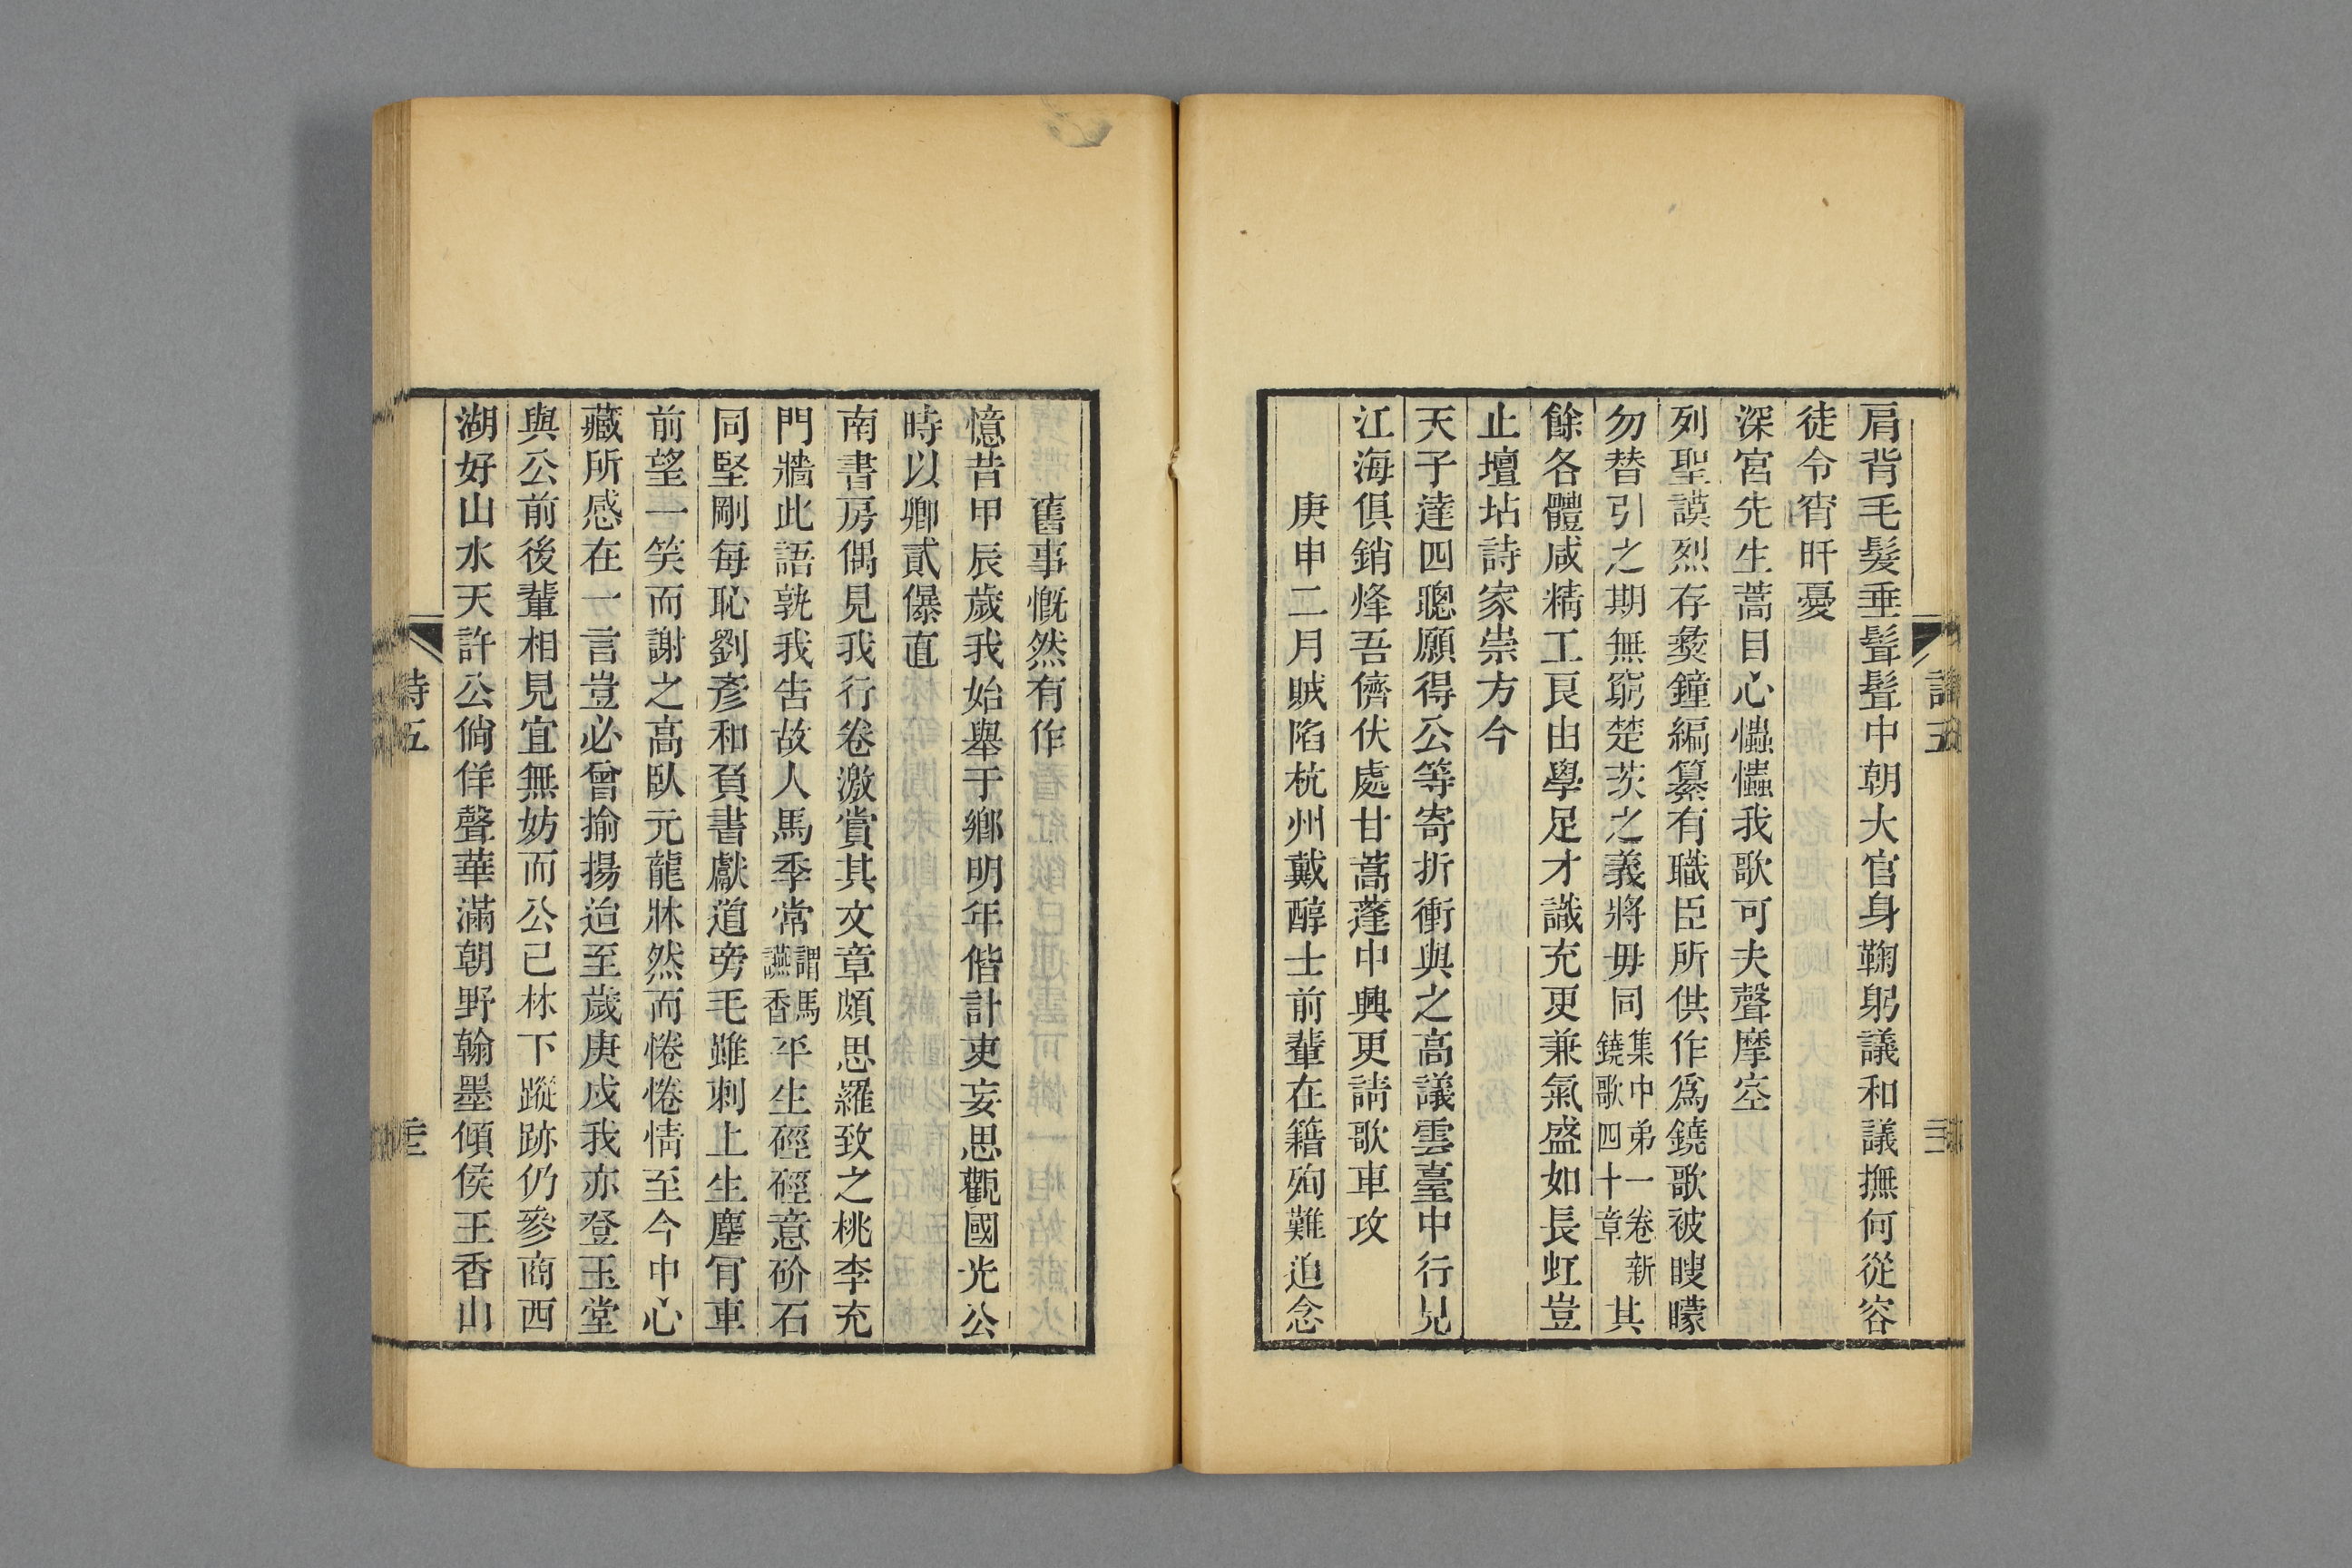 肩背毛髮垂髶髶中朝大官身鞠躬議和議撫何從容
徒令宵旰憂
深宮先生蒿目心慍慍我歌可夫聲摩空
列聖謨烈存㢡鐘編纂有職臣所供作爲鐃歌被瞍矇
勿替引之期無窮楚茨之義將毋同集中弟一卷新鐃歌四十章其
餘各體咸精工良由學足才識充更兼氣盛如長虹豈
止壇坫詩家崇方今
天子達四聰願得公等寄折衝與之高議雲臺中行見
江海俱銷烽吾儕伏處甘蒿蓬中興更請歌車攻
庚申二月賊陷杭州戴醇士前輩在籍殉難追念
舊事慨然有作
憶昔甲辰歲我始舉于鄉明年偕計吏妄思觀國光公
時以卿貳儤直
南書房偶見我行卷激賞其文章頗思羅致之桃李充
門牆此語孰我告故人馬季常謂馬讌香平生硜硜意砎石
同堅剛每恥劉彥和負書獻道旁毛雖刺上生塵罥車
前望一笑而謝之高臥元龍牀然而惓惓情至今中心
藏所感在一言豈必曾揄揚迨至歲庚戌我亦登玉堂
與公前後輩相見宜無妨而公已林下蹤跡仍參商西
湖好山水天許公倘佯聲華滿朝野翰墨傾侯王香山
詩五
詩五